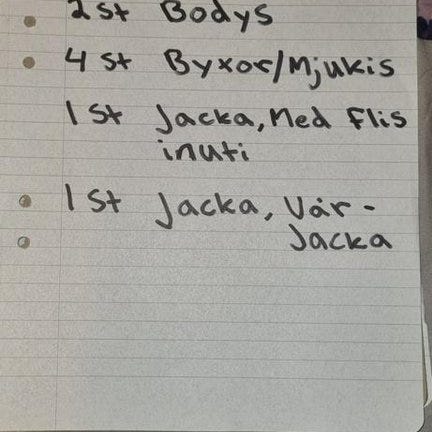 2 st Bodys
4 st Byxor/Mjukis
1 st Jacka, Med Flis
inuti
1 st Jacka, Vår-
Jacka